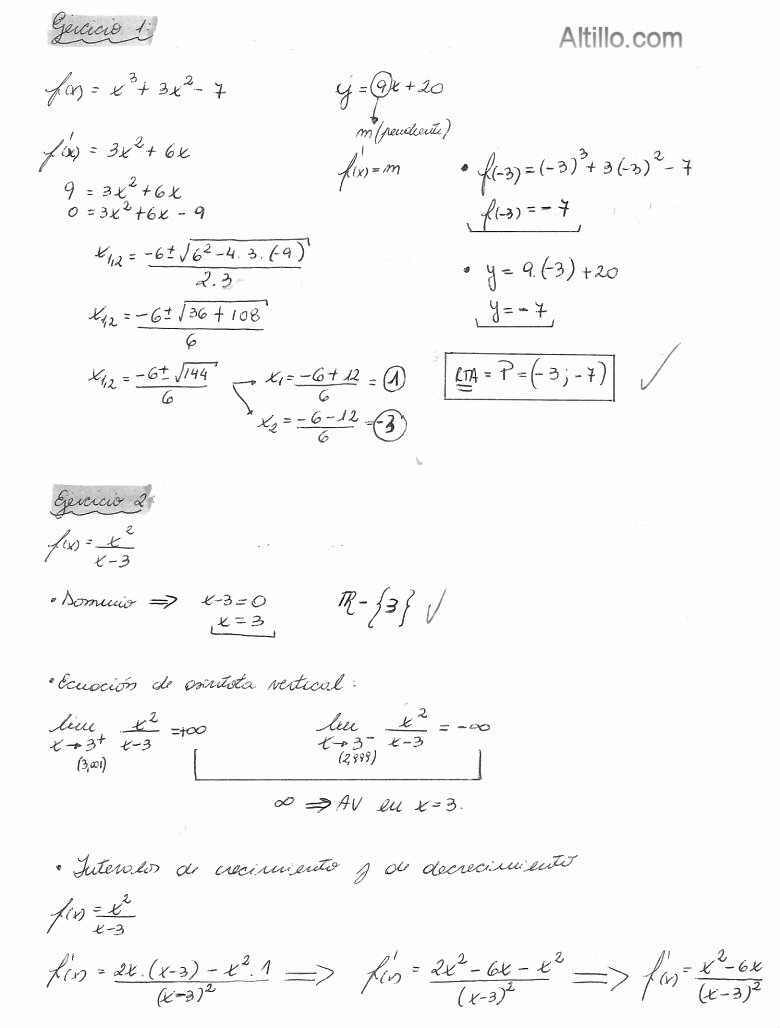 Ejercicio 1:
Altillo.com
f(x) = x³ + 3x² - 7
y = 9x + 20
m (pendiente)
f'(x) = 3x² + 6x
f'(x) = m
9 = 3x² + 6x
0 = 3x² + 6x - 9
x1,2 = (-6 ± √(6² - 4 . 3 . (-9))) / 2.3
x1,2 = (-6 ± √(36 + 108)) / 6
x1,2 = (-6 ± √144) / 6
x1 = (-6 + 12) / 6 = 1
x2 = (-6 - 12) / 6 = -3
• f(-3) = (-3)³ + 3(-3)² - 7
f(-3) = -7
• y = 9.(-3) + 20
y = -7
RTA = P = (-3 ; -7) ✓
Ejercicio 2
f(x) = x² / (x - 3)
• Dominio ⇒ x - 3 = 0 ℝ - {3} ✓
x = 3
• Ecuación de asíntota vertical:
lim x→3⁺ x² / (x - 3) = +∞ lim x→3⁻ x² / (x - 3) = -∞
(3,001) (2,999)
∞ ⇒ AV en x = 3.
• Intervalos de crecimiento y de decrecimiento
f(x) = x² / (x - 3)
f'(x) = (2x . (x - 3) - x² . 1) / (x - 3)² ⇒ f'(x) = (2x² - 6x - x²) / (x - 3)² ⇒ f'(x) = (x² - 6x) / (x - 3)²